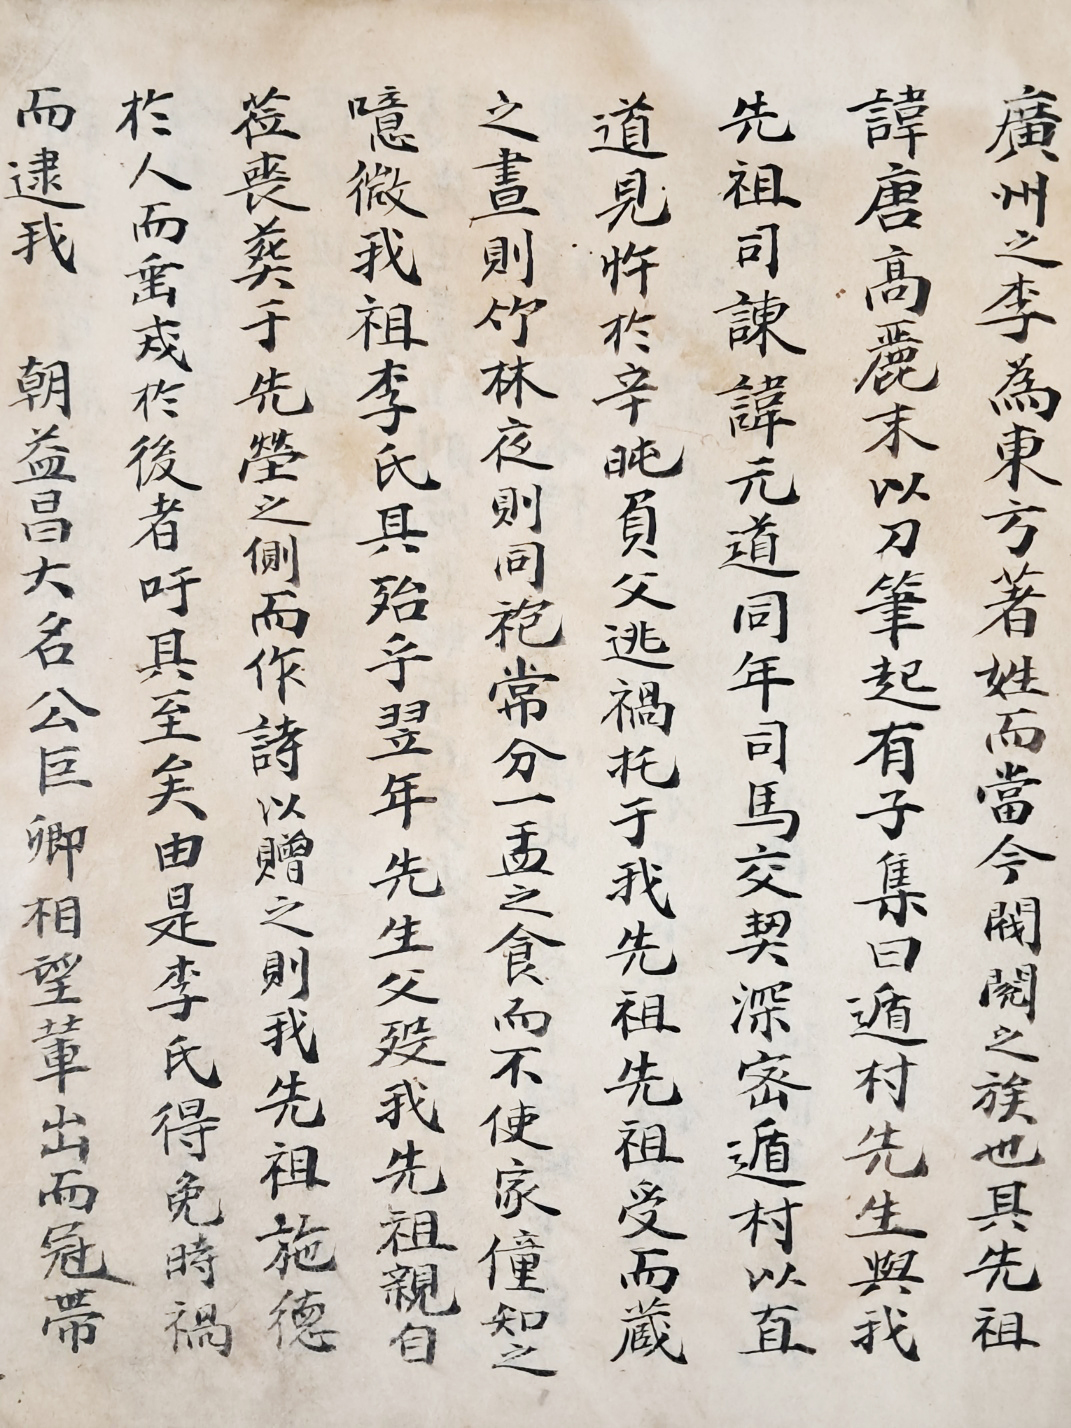 廣州之李為東方著姓而當今閥閱之族也具先祖
諱唐高麗末以刀筆起有子集曰遁村先生與我
先祖司諫諱元道同年司馬交契深密遁村以直
道見忤於辛旽負父逃禍托于我先祖先祖受而蔵
之晝則竹林夜則同袍常分一盂之食而不使家僮知之
噫微我祖李氏具殆乎翌年先生父歿我先祖親自
莅喪葬于先塋之側而作詩以贈之則我先祖施德
於人而垂戒於後者吁具至矣由是李氏得免時禍
而逮我 朝益昌大名公巨卿相望輩出而冠帶